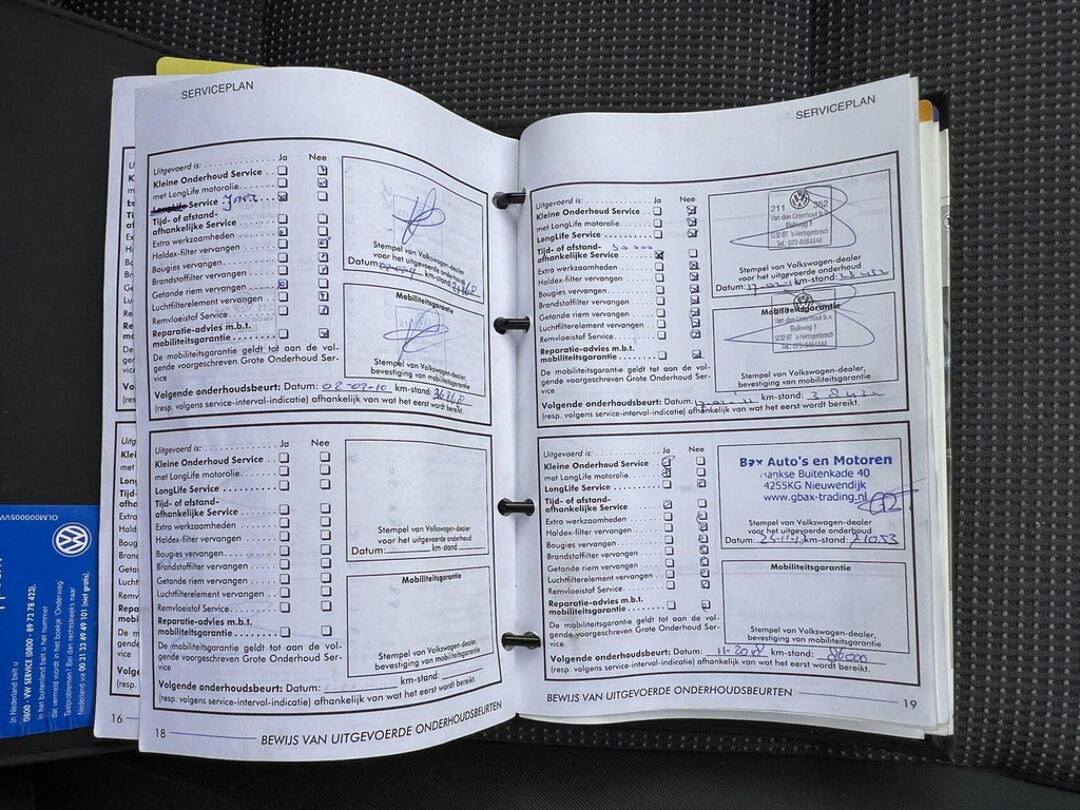 SERVICEPLAN
Uitgevoerd is: Ja Nee
Kleine Onderhoud Service
met LongLife motorolie
LongLife Service
Tijd- of afstand-
afhankelijke Service
Extra werkzaamheden
Haldex-filter vervangen
Bougies vervangen
Brandstoffilter vervangen
Getande riem vervangen
Luchtfilterelement vervangen
Remvloeistof Service
Reparatie-advies m.b.t.
mobiliteitsgarantie
De mobiliteitsgarantie geldt tot aan de vol-
gende voorgeschreven Grote Onderhoud Ser-
vice
Stempel van Volkswagen-dealer
voor het uitgevoerde onderhoud
Datum: km-stand:
Mobiliteitsgarantie
Stempel van Volkswagen-dealer,
bevestiging van mobiliteitsgarantie
Volgende onderhoudsbeurt: Datum: 02-02-10 km-stand:
(resp. volgens service-interval-indicatie) afhankelijk van wat het eerst wordt bereikt.
Uitgevoerd is: Ja Nee
Kleine Onderhoud Service
met LongLife motorolie
LongLife Service
Tijd- of afstand-
afhankelijke Service
Extra werkzaamheden
Haldex-filter vervangen
Bougies vervangen
Brandstoffilter vervangen
Getande riem vervangen
Luchtfilterelement vervangen
Remvloeistof Service
Reparatie-advies m.b.t.
mobiliteitsgarantie
De mobiliteitsgarantie geldt tot aan de vol-
gende voorgeschreven Grote Onderhoud Ser-
vice
Stempel van Volkswagen-dealer
voor het uitgevoerde onderhoud
Datum: km-stand
Mobiliteitsgarantie
Stempel van Volkswagen-dealer,
bevestiging van mobiliteitsgarantie
Volgende onderhoudsbeurt: Datum: km-stand:
(resp. volgens service-interval-indicatie) afhankelijk van wat het eerst wordt bereikt.
16
18 BEWIJS VAN UITGEVOERDE ONDERHOUDSBEURTEN
SERVICEPLAN
Uitgevoerd is: Ja Nee
Kleine Onderhoud Service
met LongLife motorolie
LongLife Service
Tijd- of afstand-
afhankelijke Service
Extra werkzaamheden
Haldex-filter vervangen
Bougies vervangen
Brandstoffilter vervangen
Getande riem vervangen
Luchtfilterelement vervangen
Remvloeistof Service
Reparatie-advies m.b.t.
mobiliteitsgarantie
De mobiliteitsgarantie geldt tot aan de vol-
gende voorgeschreven Grote Onderhoud Ser-
vice
211 352
Van den Udenhout b.v.
's-Hertogenbosch
Tel.: 073-6464444
Stempel van Volkswagen-dealer
voor het uitgevoerde onderhoud
Datum: km-stand:
Mobiliteitsgarantie
Van den Udenhout b.v.
's-Hertogenbosch
Stempel van Volkswagen-dealer,
bevestiging van mobiliteitsgarantie
Volgende onderhoudsbeurt: Datum: km-stand:
(resp. volgens service-interval-indicatie) afhankelijk van wat het eerst wordt bereikt.
Uitgevoerd is: Ja Nee
Kleine Onderhoud Service
met LongLife motorolie
LongLife Service
Tijd- of afstand-
afhankelijke Service
Extra werkzaamheden
Haldex-filter vervangen
Bougies vervangen
Brandstoffilter vervangen
Getande riem vervangen
Luchtfilterelement vervangen
Remvloeistof Service
Reparatie-advies m.b.t.
mobiliteitsgarantie
De mobiliteitsgarantie geldt tot aan de vol-
gende voorgeschreven Grote Onderhoud Ser-
vice
Bax Auto's en Motoren
Buitenkade 40
4255KG Nieuwendijk
www.gbax-trading.nl
Stempel van Volkswagen-dealer
voor het uitgevoerde onderhoud
Datum: km-stand: 71053
Mobiliteitsgarantie
Stempel van Volkswagen-dealer,
bevestiging van mobiliteitsgarantie
Volgende onderhoudsbeurt: Datum: 11-2018 km-stand: 86000
(resp. volgens service-interval-indicatie) afhankelijk van wat het eerst wordt bereikt.
BEWIJS VAN UITGEVOERDE ONDERHOUDSBEURTEN 19
In Nederland belt u
0800 - VW SERVICE (0800 - 89 73 78 423).
In het buitenland belt u het nummer
dat vermeld wordt in het boekje 'Onderweg'
Taalproblemen? Bel dan rechtstreeks naar
Nederland via 00 31 33 49 49 101 (niet gratis).